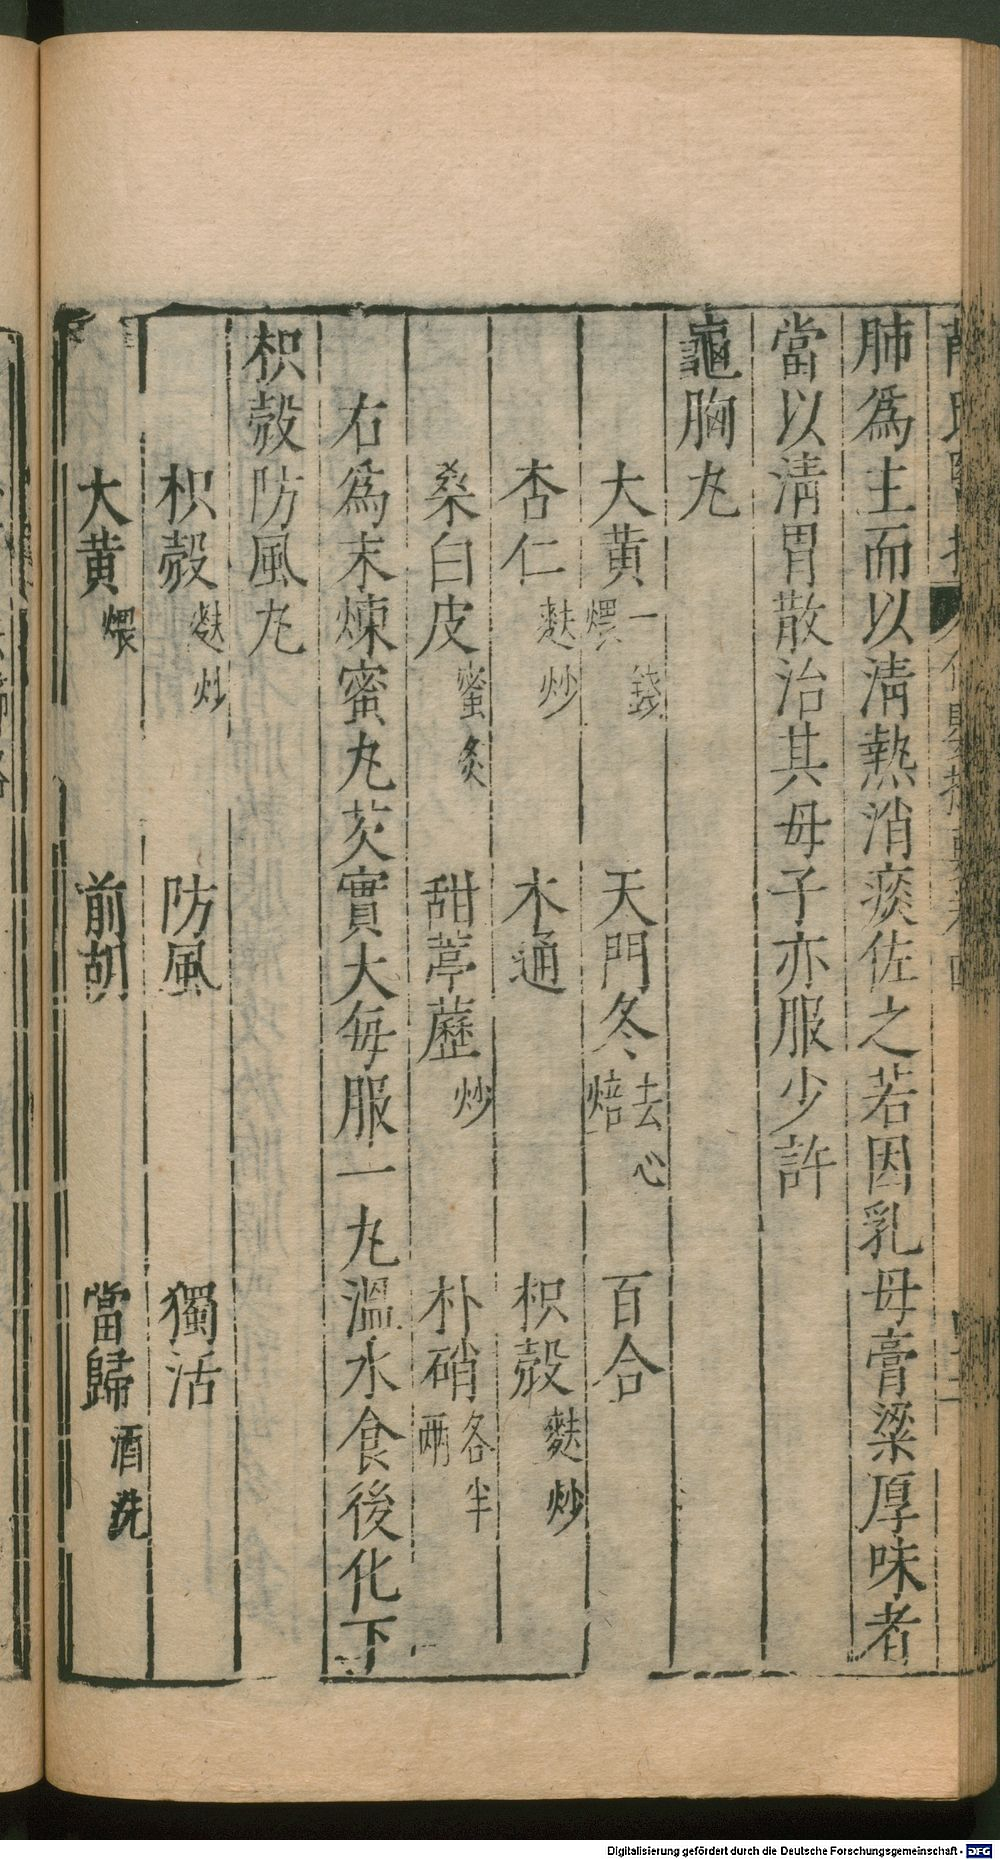 肺爲主而以淸熱消痰佐之若因乳母膏粱厚味者
當以淸胃散治其母子亦服少許
龜胸丸
大黃一錢煨 天門冬去心焙 百合
杏仁麩炒 木通 枳殼麩炒
桑白皮蜜炙 甜葶藶炒 朴硝各半兩
右爲末煉蜜丸芡實大每服一丸溫水食後化下
枳殼防風丸
枳殼麩炒 防風 獨活
大黃煨 前胡 當歸酒洗
Digitalisierung gefördert durch die Deutsche Forschungsgemeinschaft - DFG